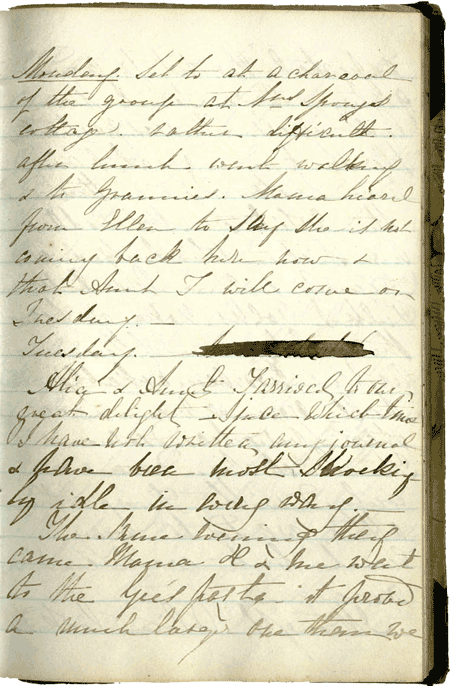 Monday. Set to at a charcoal
of the group at Mrs Spong's
cottage. rather difficult.
after lunch went walking
& to Grannies. Mama heard
from Ellen to say she is not
coming back here now &
that Aunt T will come on
Tuesday. —
Tuesday.
& Aunt T arrived to our
great delight. Since which time
I have not written any journal
& have been most shocking
ly idle in every way.
The same evening they
came. Mama & me went
to the it proved
a much larger one than we